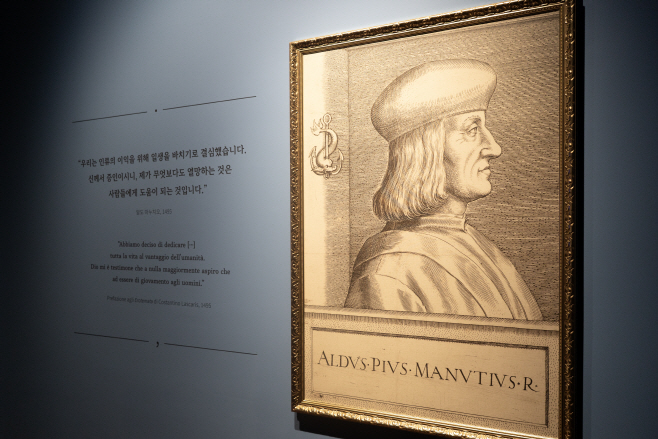 “우리는 인류의 이익을 위해 일생을 바치기로 결심했습니다.
신께서 증인이시니, 제가 무엇보다도 열망하는 것은
사람들에게 도움이 되는 것입니다.”
“Abbiamo deciso di dedicare [~]
tutta la vita al vantaggio dell’umanità.
Dio mi è testimone che a nulla maggiormente aspiro che
ad essere di giovamento agli uomini.”
ALDVS·PIVS·MANVTIVS·R·